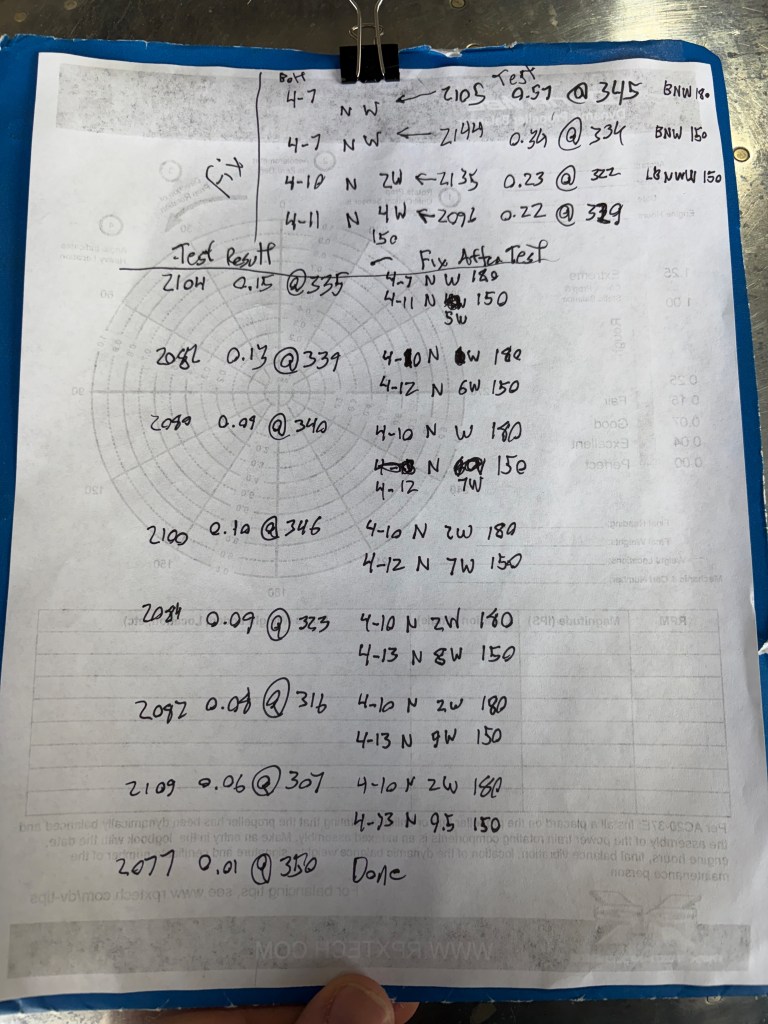 Bolt Test
4-7 N W ← 2105 0.57 @ 345 BNW 180
4-7 N W ← 2144 0.34 @ 334 BNW 150
4-10 N 2W ← 2135 0.23 @ 322 150
4-11 N 4W ← 2092 0.22 @ 329
150
Test Result Fix After Test
2104 0.15 @ 335 4-7 N W 180
4-11 N 150
5W
2082 0.13 @ 339 4-10 N W 180
4-12 N 6W 150
2080 0.09 @ 340 4-10 N W 180
N 150
4-12 7W
2100 0.10 @ 346 4-10 N 2W 180
4-12 N 7W 150
2084 0.09 @ 323 4-10 N 2W 180
4-13 N 8W 150
2092 0.08 @ 316 4-10 N 2W 180
4-13 N 9W 150
2109 0.06 @ 307 4-10 N 2W 180
4-13 N 9.5 150
2077 0.01 @ 350 Done
WWW.RPXTECH.COM